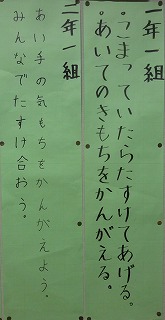 一年一組
・こまっていたらたすけてあげる。
・あいてのきもちをかんがえる。
二年一組
あい手の気もちをかんがえよう。
みんなでたすけ合おう。